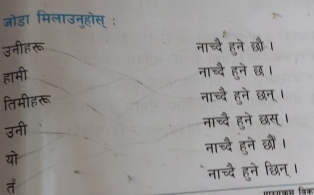 जोडा मिलाउनुहोस् :
उनीहरू नाच्दै हुने छौ ।
हामी नाच्दै हुने छ ।
तिमीहरू नाच्दै हुने छन् ।
उनी नाच्दै हुने छस् ।
यो नाच्दै हुने छौं ।
तँ नाच्दै हुने छिन् ।